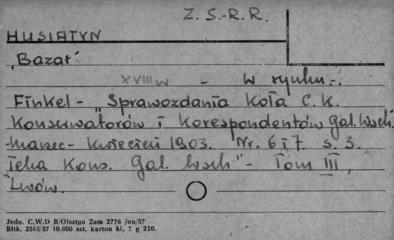 Z. S.-R. R.
HUSIATYN
„Bazar".
XVIII w - w rynku -.
Finkel - „Sprawozdania Koła C. K.
Konserwatorów i Korespondentów Gal. Wsch."
marzec - kwiecień 1903. Nr. 6 i 7. s. 3.
Teka Kons. Gal. Wsch" - Tom III,
"Lwów.
Jedn. C.W.D B/Olsztyn Zam 2776 /on/57
Bltk. 2563/57 10.000 szt. karton kl. 7 g 220.